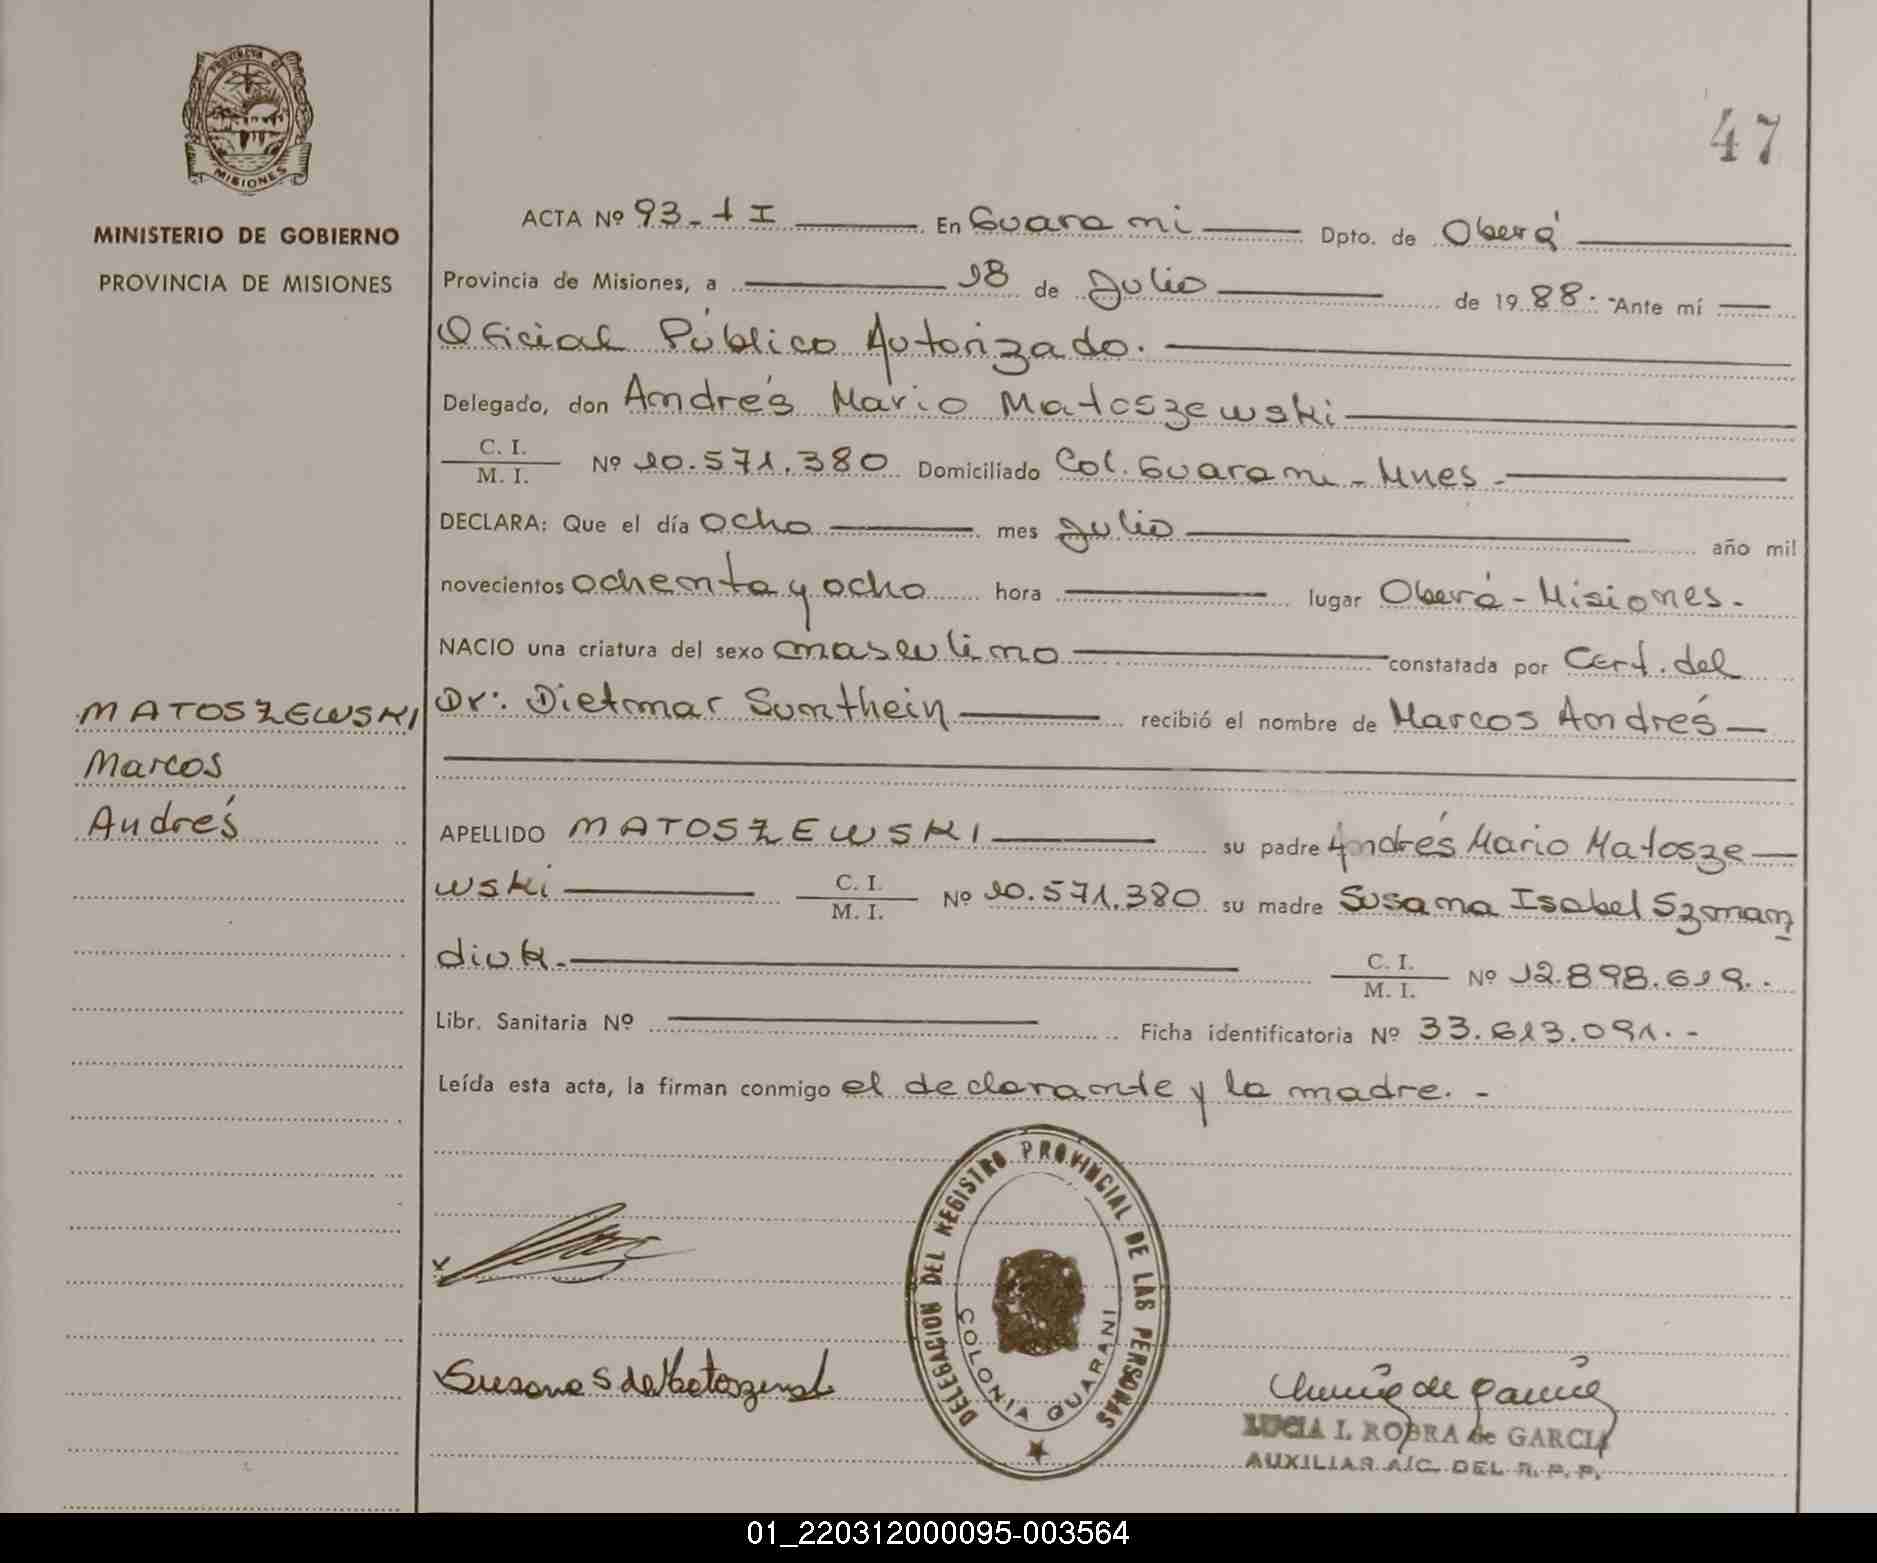 PROVINCIA DE
MISIONES
MINISTERIO DE GOBIERNO
PROVINCIA DE MISIONES
47
ACTA Nº 93 - t I En Guarani Dpto. de Oberá
Provincia de Misiones, a 18 de Julio de 1988.- Ante mí
Oficial Público Autorizado.
Delegado, don Andrés Mario Matoszewski
C. I.
M. I. Nº 10.571.380 Domiciliado Col. Guarani - Mnes -
DECLARA: Que el día ocho mes Julio año mil
novecientos ochenta y ocho hora lugar Oberá - Misiones.
NACIO una criatura del sexo masculino constatada por Cert. del
Dr: Dietmar Sumthein recibió el nombre de Marcos Andrés
MATOSZEWSKI
Marcos
Andrés
APELLIDO MATOSZEWSKI su padre Andrés Mario Matosze
wski C. I.
M. I. Nº 10.571.380 su madre Susana Isabel Szmanz
diuk. C. I.
M. I. Nº 12.898.619.
Libr. Sanitaria Nº Ficha identificatoria Nº 33.613.091.-
Leída esta acta, la firman conmigo el declarante y la madre.-
DELEGACION DEL REGISTRO PROVINCIAL DE LAS PERSONAS
COLONIA GUARANI
Susana S de
LUCIA I. ROBRA de GARCIA
AUXILIAR A/C. DEL R. P. P.
01_220312000095-003564